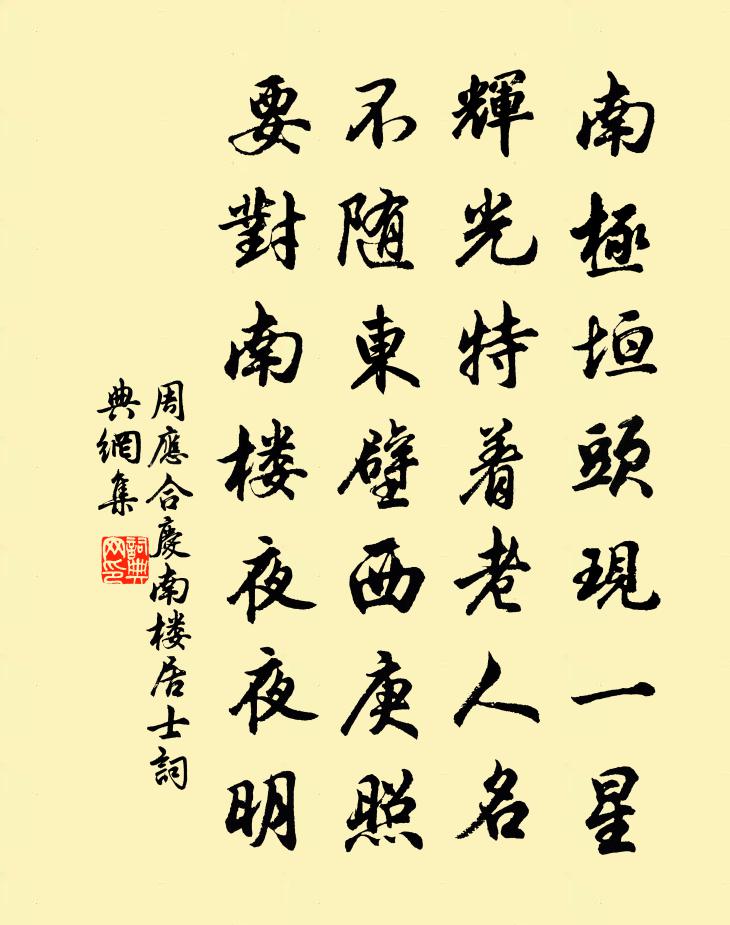 南極垣頭現一星
輝光特着老人名
不随東壁西庚照
要對南楼夜夜明
周應合慶南楼居士詞
典網集
詞典
网印